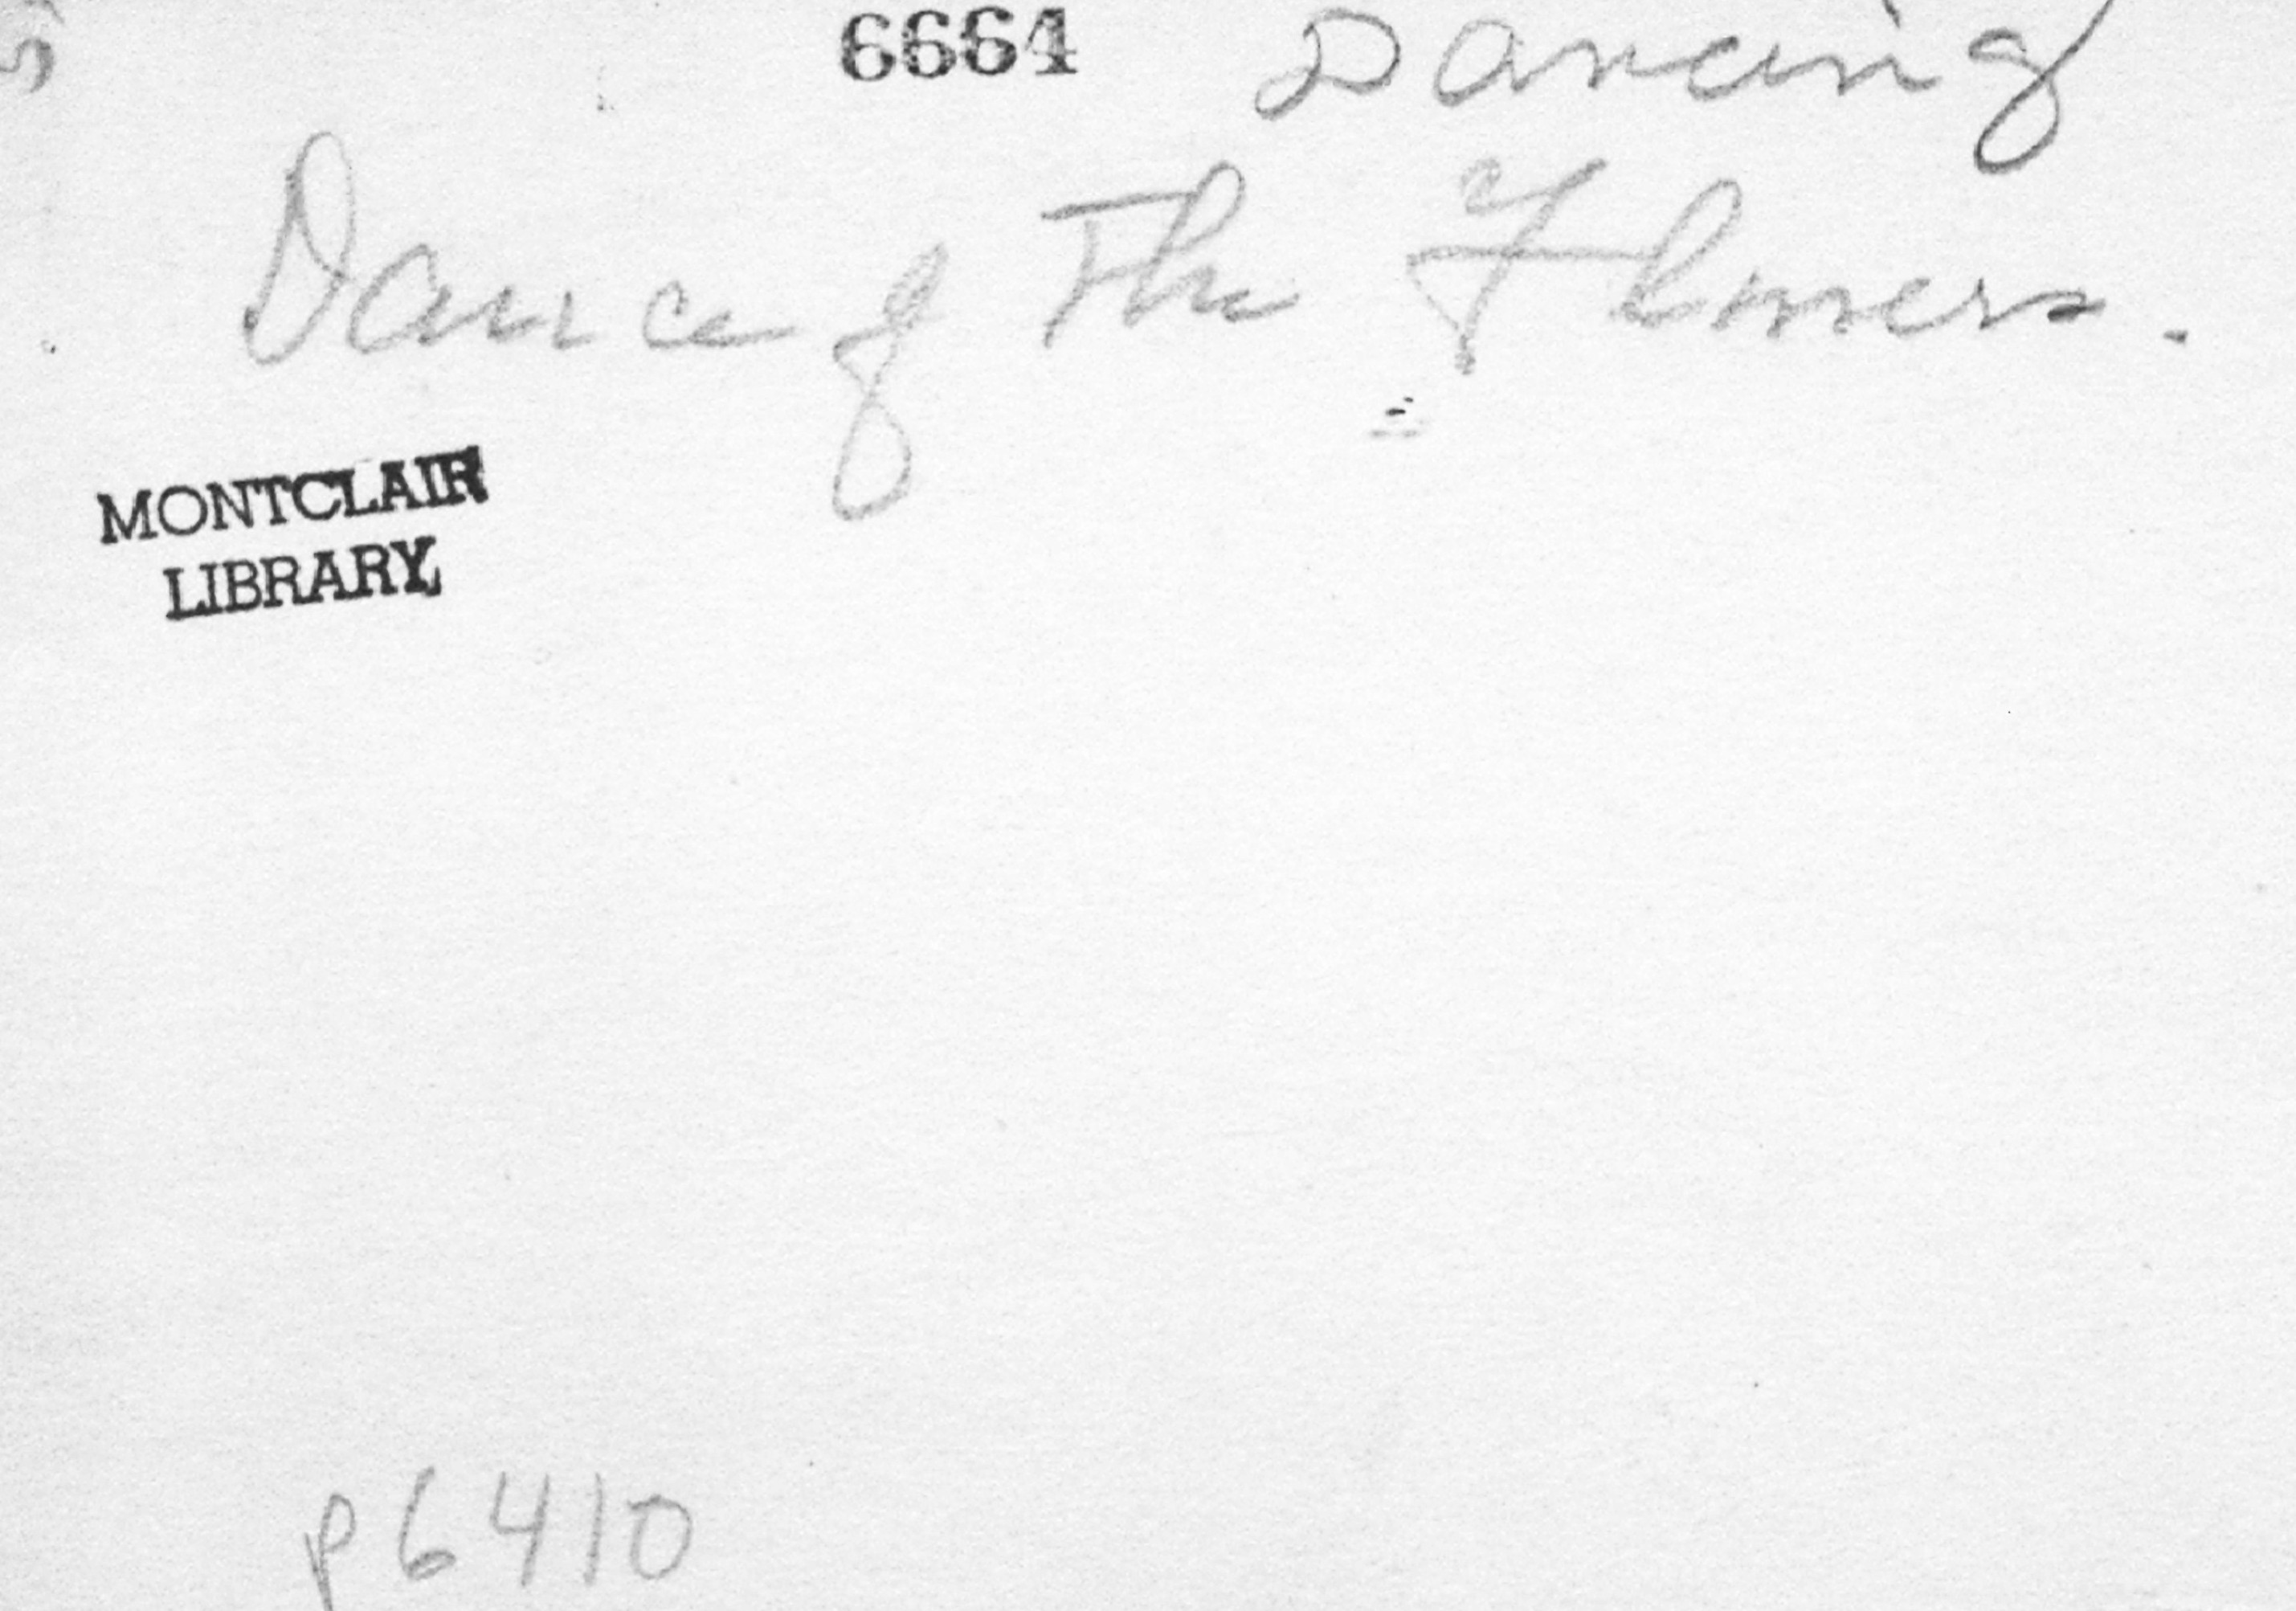 6664 Dancing
Dance of The Flowers.
MONTCLAIR
LIBRARY
p6410